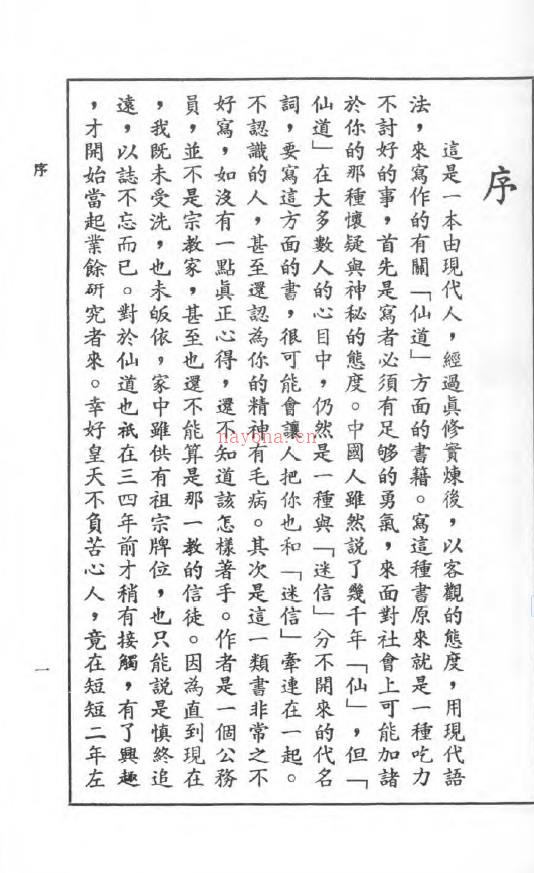 序
這是一本由現代人，經過眞修實煉後，以客觀的態度，用現代語
法，來寫作的有關「仙道」方面的書籍。寫這種書原來就是一種吃力
不討好的事，首先是寫者必須有足够的勇氣，來面對社會上可能加諸
於你的那種懷疑與神秘的態度。中國人雖然說了幾千年「仙」，但「
仙道」在大多數人的心目中，仍然是一種與「迷信」分不開來的代名
詞，要寫這方面的書，很可能會讓人把你也和「迷信」牽連在一起。
不認識的人，甚至還認為你的精神有毛病。其次是這一類書非常之不
好寫，如沒有一點眞正心得，還不知道該怎樣著手。作者是一個公務
員，並不是宗教家，甚至也還不能算是那一教的信徒。因為直到現在
，我既未受洗，也未皈依，家中雖供有祖宗牌位，也只能說是慎終追
遠，以誌不忘而已。對於仙道也祇在三四年前才稍有接觸，有了興趣
，才開始當起業餘研究者來。幸好皇天不負苦心人，竟在短短二年左
序
一
nayona.cn